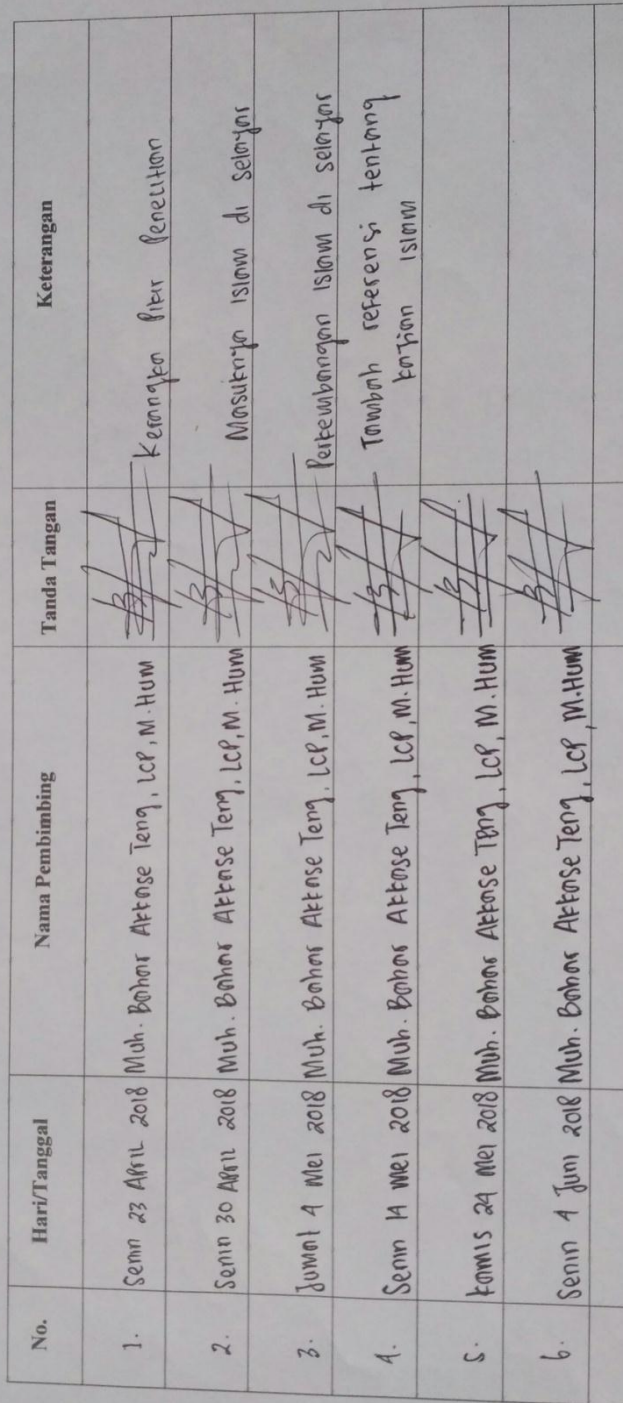 No. Hari/Tanggal Nama Pembimbing Tanda Tangan Keterangan
1. Senin 23 April 2018 Muh. Bahar Akkase Teng, LCP, M. Hum Kerangka Pikir Penelitian
2. Senin 30 April 2018 Muh. Bahar Akkase Teng, LCP, M. Hum Masuknya Islam di Selayar
3. Jumat 4 Mei 2018 Muh. Bahar Akkase Teng, LCP, M. Hum Perkembangan Islam di selayar
4. Senin 14 Mei 2018 Muh. Bahar Akkase Teng, LCP, M. Hum Tambah referensi tentang
kajian Islam
5. Kamis 24 Mei 2018 Muh. Bahar Akkase Teng, LCP, M. Hum
6. Senin 4 Juni 2018 Muh. Bahar Akkase Teng, LCP, M. Hum